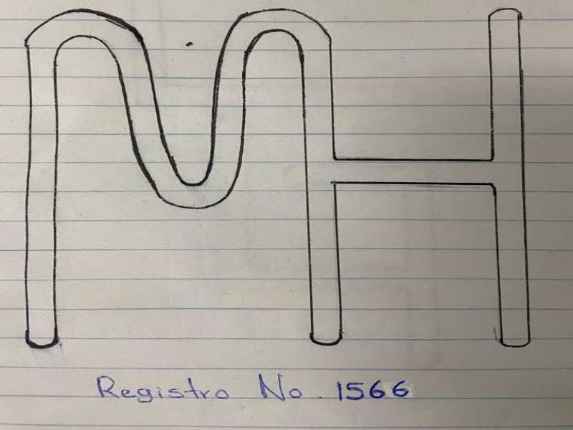 MH
Registro No. 1566